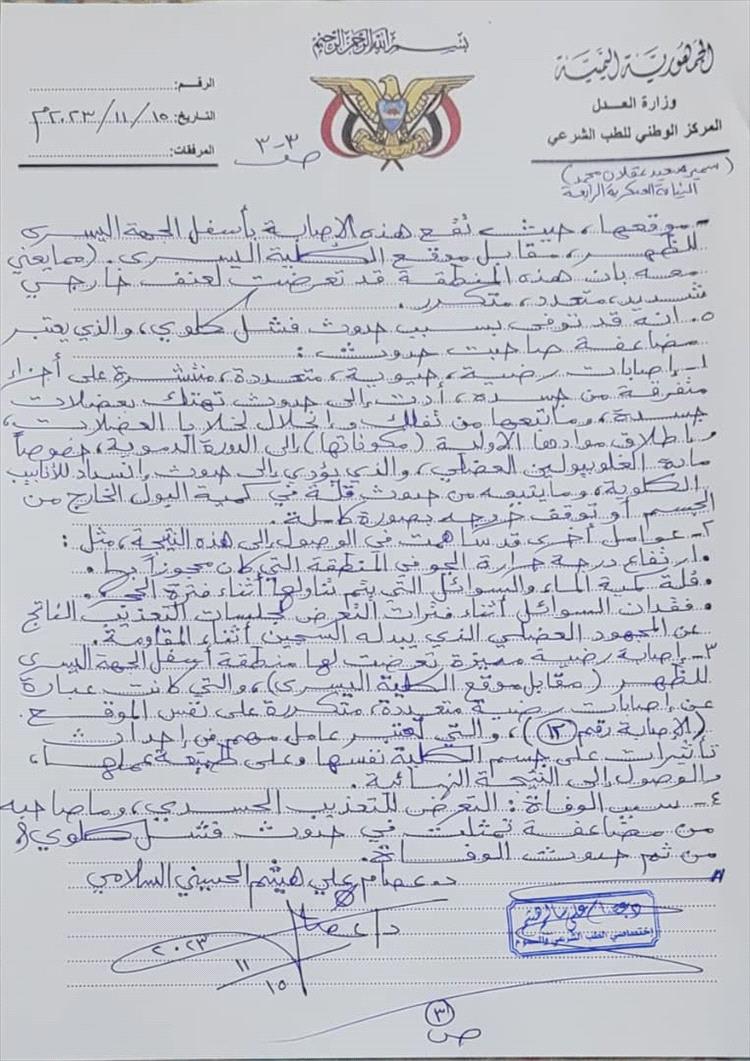 بسم الله الرحمن الرحيم
الجمهورية اليمنية
وزارة العدل
المركز الوطني للطب الشرعي
(سمير سعيد عقلان محمد)
النيابة العسكرية الرابعة
الرقم:
التاريخ: ١٥/١١/٢٠٢٣م
المرفقات:
صف ٣-٣
- موقعها، حيث تقع هذه الإصابة بأسفل الجهة اليسرى
للظهر، مقابل موقع الكلية اليسرى. (مما يعني
معه بان هذه المنطقة قد تعرضت لعنف خارجي
شديد، متعدد، متكرر.
٥. انه قد توفى بسبب حدوث فشل كلوي، والذي يعتبر
مضاعفة صاحبت حدوث:
١- إصابات رضية، حيوية، متعددة، منتشرة على أجزاء
متفرقة من جسده، أدت إلى حدوث تهتك بعضلات
جسده، وما تبعها من تفكك وإنحلال لخلايا العضلات،
باطلاق موادها الأولية (مكوناتها) إلى الدورة الدموية، خصوصاً
مادة الغلوبيولين العضلي، والذي يؤدي إلى حدوث إنسداد للأنابيب
الكلوية، وما يتبعه من حدوث قلة في كمية البول الخارج من
الجسم أو توقف خروجه بصورة كاملة.
٢- عوامل أخرى قد ساهمت في الوصول إلى هذه النتيجة، مثل:
• ارتفاع درجة حرارة الجو في المنطقة التي كان محجوزاً بها.
• قلة كمية الماء والسوائل التي يتم تناولها أثناء فترة الحجز.
• فقدان السوائل أثناء فترات التعرض لجلسات التعذيب الناتج
عن المجهود العضلي الذي يبذله السجين أثناء المقاومة.
٣- إصابة رضية مميزة تعرضت لها منطقة أسفل الجهة اليسرى
للظهر (مقابل موقع الكلية اليسرى)، والتي كانت عبارة
عن إصابات رضية متعددة، متكررة على نفس الموقع.
(الإصابة رقم ١٢)، والتي تعتبر عامل مهم في إحداث
تأثيرات على جسم الكلية نفسها وعلى طبيعة عملها،
والوصول إلى النتيجة النهائية.
٤- سبب الوفاة: التعرض للتعذيب الجسدي، وما صاحبه
من مضاعفة تمثلت في حدوث فشل كلوي،
من ثم حدوث الوفاة.
د. عصام علي هيثم الحسيني السلامي
د/عصام
١٥
١١
٢٠٢٣
إختصاصي الطب الشرعي والسموم
ص ٣